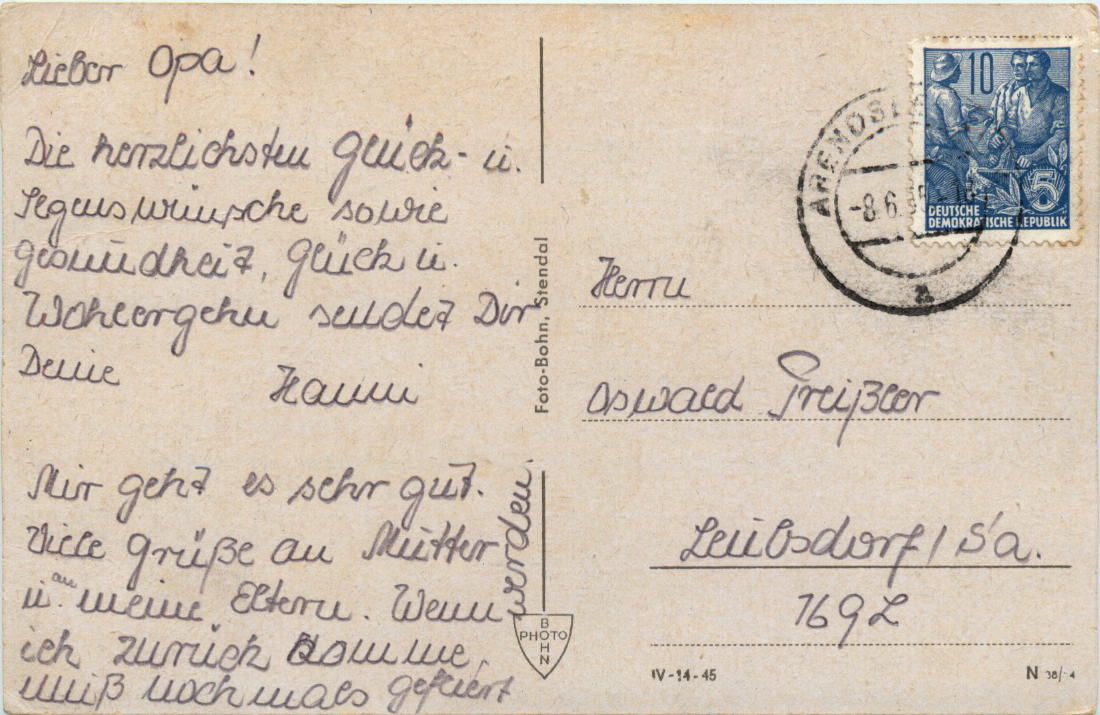 Lieber Opa!
Die herzlichsten Glück- u.
Segenswünsche sowie
Gesundheit, Glück u.
Wohlergehn sendet Dir
Deine
Hanni
Mir geht es sehr gut.
Viele Grüße an Mutter
u. an meine Eltern. Wenn
ich zurück komme,
muß nochmals gefeiert
werden
Foto-Bohn, Stendal
BOHN
PHOTO
10
5
DEUTSCHE
DEMOKRATISCHE REPUBLIK
-8.6.
A
Herrn
Oswald Preißler
Leubsdorf / Sa.
169L
IV-14-45
N